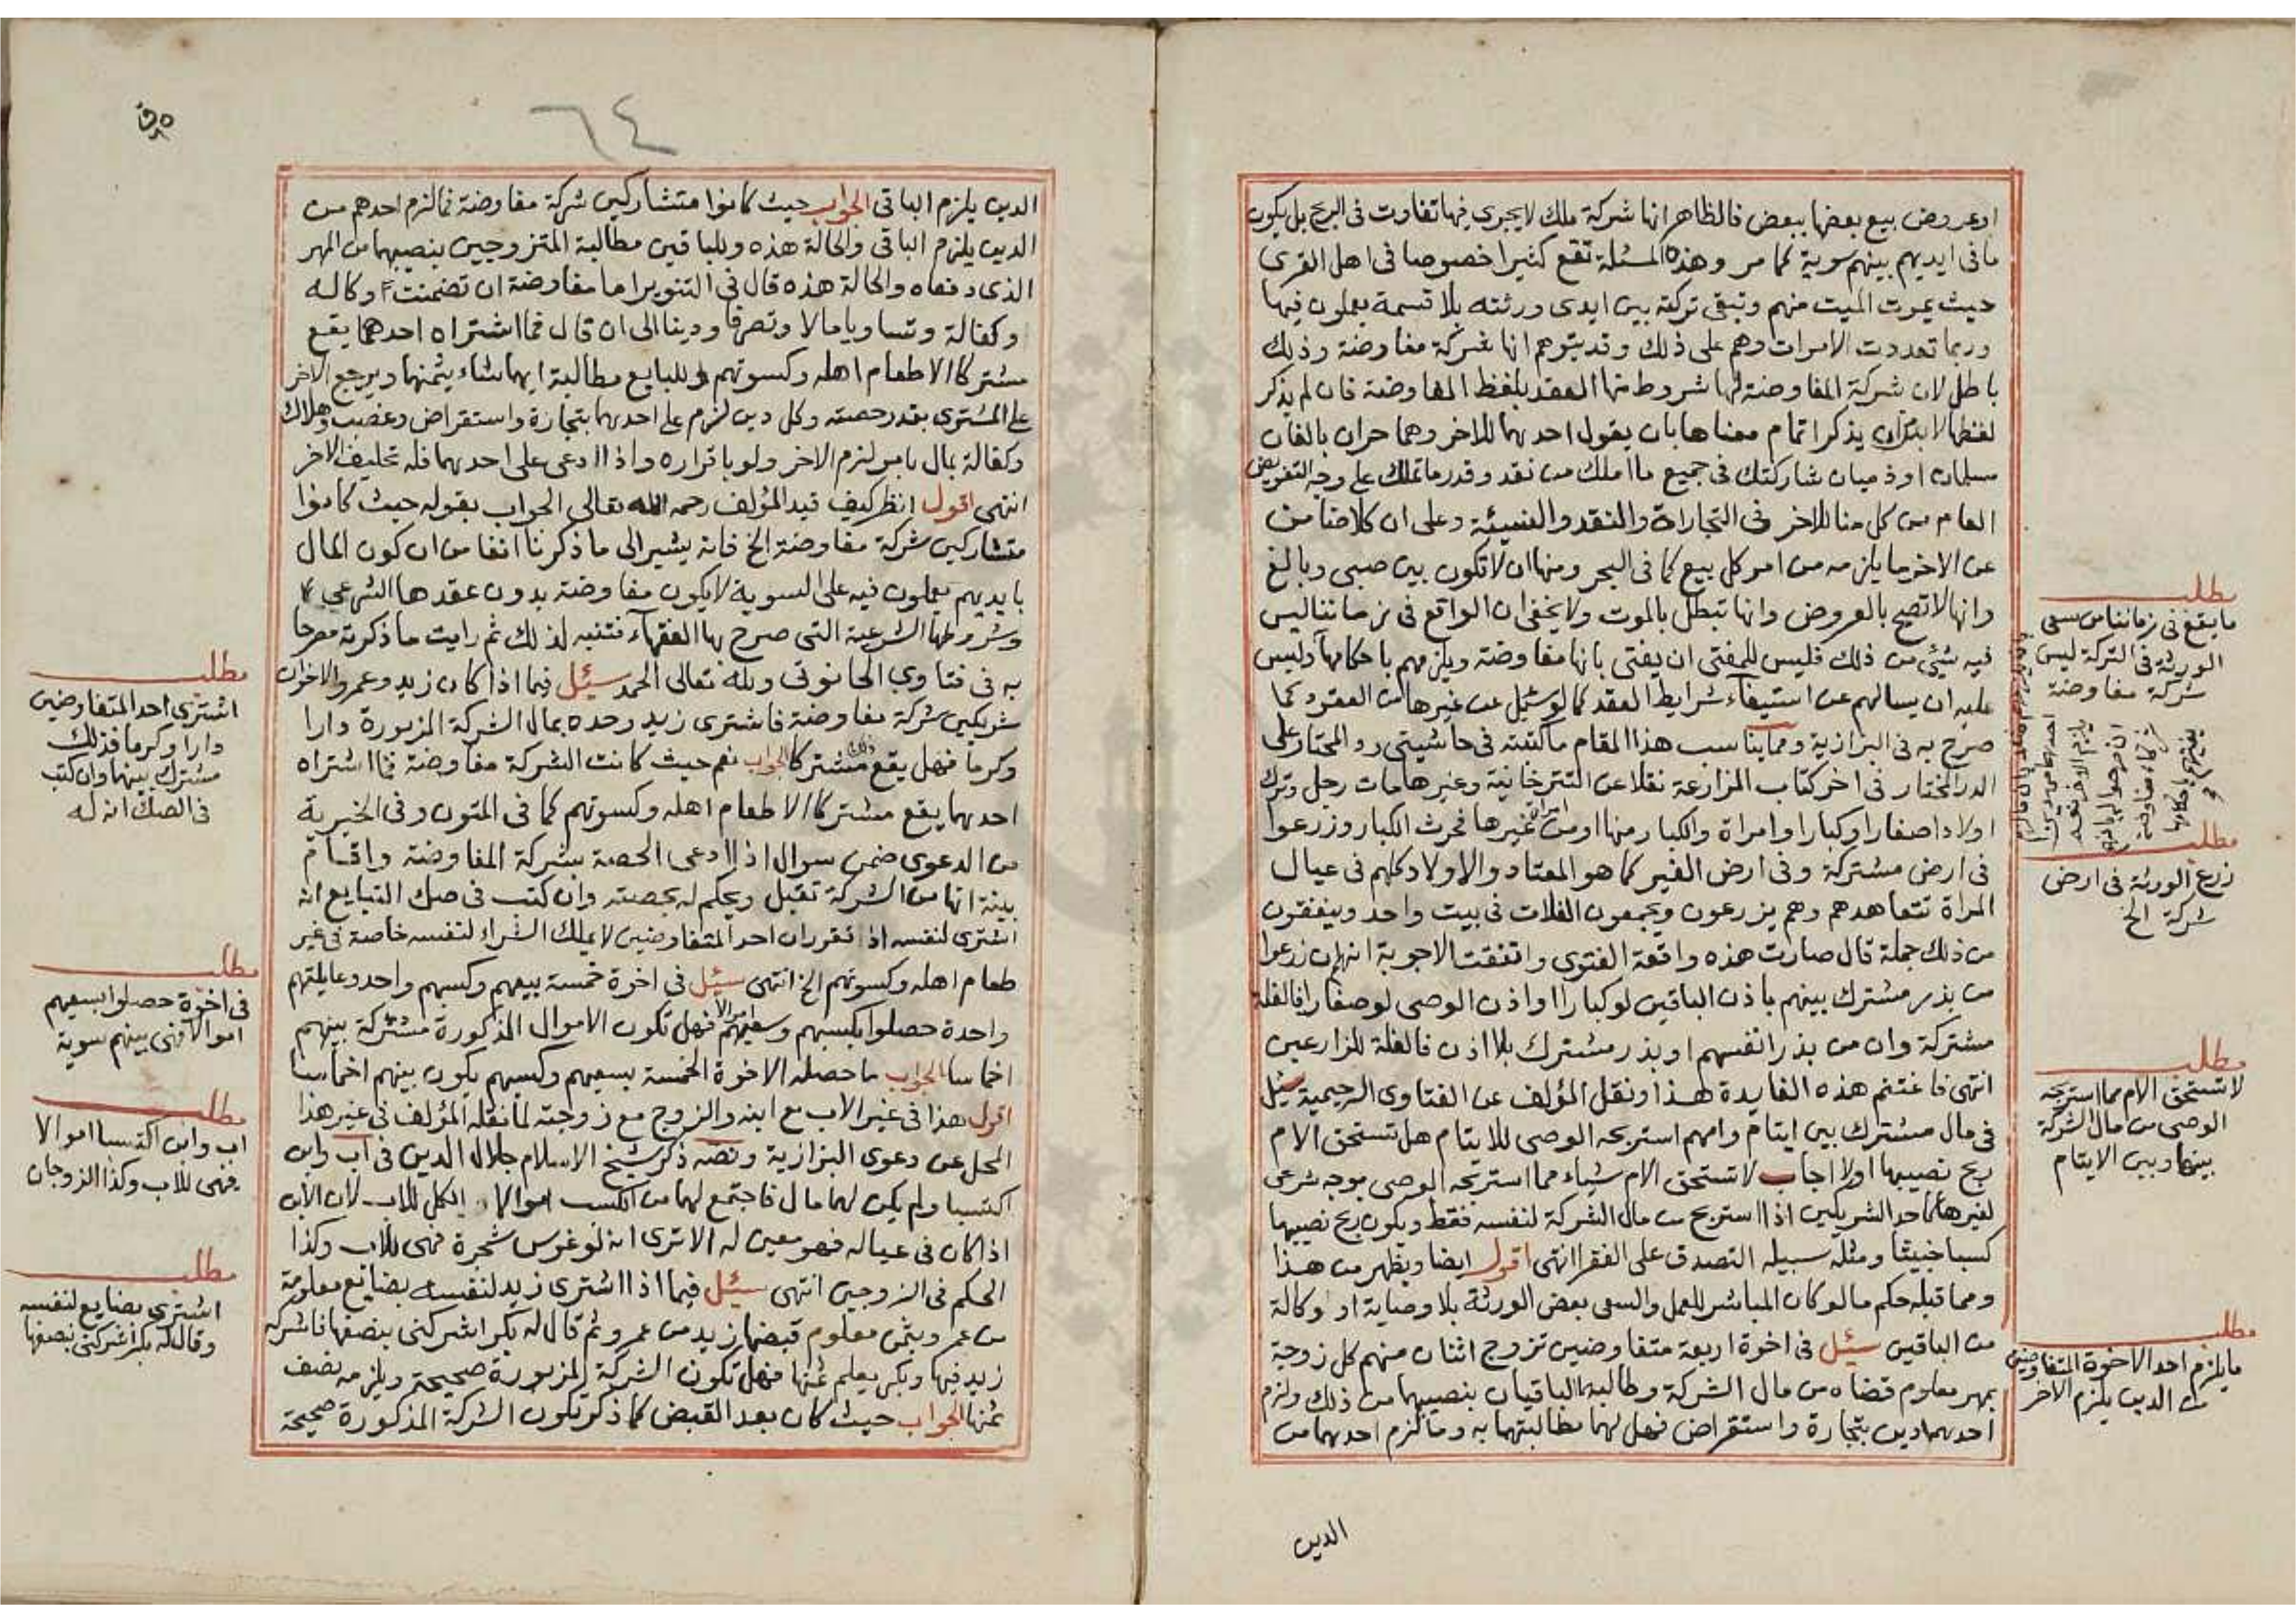 اوعروض بيع بعضها ببعض فالظاهر انها شركة ملك لا يجري فيها تفاوت في الربح بل يكون
ما في ايديهم بينهم سوية كما مر وهذه المسئلة تقع كثيرا خصوصا في اهل القرى
حيث يموت الميت منهم وتبقى تركته بين ايدي ورثته بلا قسمة يعملون فيها
وربما تعددت الاموات وهم على ذلك وقد يتوهم انها شركة مفاوضة وذلك
باطل لان شركة المفاوضة لها شروط منها العقد بلفظ المفاوضة فان لم يذكر
لفظها لابد ان يذكر اتمام معناها بان يقول احدهما للاخر وهما حران بالغان
مسلمان او ذميان شاركتك في جميع ما املك من نقد وقدر ما تملك على وجه التفويض
العام من كل منا للاخر في التجاراة والنقد والنسيئة وعلى ان كلا ضامن
عن الاخر ما يلزمه من امر كل بيع كما في البحر ومنها ان لا تكون بين صبي وبالغ
وانها لا تصح بالعروض وانها تبطل بالموت ولا يخفى ان الواقع في زماننا ليس
فيه شيئ من ذلك فليس للمفتي ان يفتي بانها مفاوضة ويلزمهم باحكامها وليس
عليه ان يسالهم عن استيفاء شرايط العقد كما لو سئل عن غيرها من العقود كما
صرح به في البزازية ومما يناسب هذا المقام ما كتبته في حاشيتي رد المحتار على
الدر المختار في اخر كتاب المزارعة نقلا عن التترخانية وغيرها مات رجل وترك
اولادا صغارا وكبارا وامراة والكبار منها او من امراة غيرها فحرث الكبار وزرعوا
في ارض مشتركة وفي ارض الغير كما هو المعتاد والاولاد كلهم في عيال
المراة تتعاهدهم وهم يزرعون ويجمعون الغلات في بيت واحد وينفقون
من ذلك جملة قال صارت هذه واقعة الفتوى واتفقت الاجوبة انهم ان زرعوا
من بذر مشترك بينهم باذن الباقين لو كبارا او اذن الوصي لو صغارا فالغلة
مشتركة وان من بذر انفسهم او بذر مشترك بلا اذن فالغلة للزارعين
انتهى فاغتنم هذه الفايدة هذا ونقل المؤلف عن الفتاوى الرحيمية سئل
في مال مشترك بين ايتام وامهم استربحه الوصي للايتام هل تستحق الام
ربح نصيبها اولا اجاب لا تستحق الام شياء مما استربحه الوصي بوجه شرعي
لغيرها كاحد الشريكين اذا استربح من مال الشركة لنفسه فقط ويكون ربح نصيبها
كسبا خبيثا ومثله سبيله التصدق على الفقرا انتهى اقول ايضا ويظهر من هذا
ومما قبله حكم ما لو كان المباشر للعمل والسعي بعض الورثة بلا وصاية او وكالة
من الباقين سئيل في اخوة اربعة متفاوضين تزوج اثنان منهم كل زوجة
بمهر معلوم قضاه من مال الشركة وطالبهما الباقيان بنصيبهما من ذلك ولزم
احدهما دين بتجارة واستقراض فهل لهما مطالبتهما به وما لزم احدهما من
الدين
مطلب
ما يقع في زماننا من سعي
الورثة في التركة ليس
شركة مفاوضة
مطلب
زرع الورثة في ارض
شركة الخ
مطلب
لا تستحق الام مما استربحه
الوصي من مال الشركة
بينها وبين الايتام
مطلب
ما يلزم احد الاخوة المتفاوضين
من الدين يلزم الاخر
٦٤
الدين يلزم الباقي الجواب حيث كانوا متشاركين شركة مفاوضة فما لزم احدهم من
الدين يلزم الباقي والحالة هذه وللباقين مطالبة المتزوجين بنصيبهما من المهر
الذي دفعاه والحالة هذه قال في التنوير اما مفاوضة ان تضمنت وكالة
وكفالة وتساويا مالا وتصرفا ودينا الى ان قال فما اشتراه احدهما يقع
مشتركا الا طعام اهله وكسوتهم وللبايع مطالبة ايهما شاء بثمنها ويرجع الاخر
على المشتري بقدر حصته وكل دين لزم على احدهما بتجارة واستقراض وغصب وهلاك
وكفالة بمال بامر لزم الاخر ولو باقراره واذا ادعى على احدهما فله تحليف الاخر
انتهى اقول انظر كيف قيد المؤلف رحمه الله تعالى الجواب بقوله حيث كانوا
متشاركين شركة مفاوضة الخ فانه يشير الى ما ذكرنا انفا من ان كون المال
بايديهم يعملون فيه على السوية لا يكون مفاوضة بدون عقدها الشرعي
وشروطها الشرعية التي صرح بها الفقهاء فتنبه لذلك ثم رايت ما ذكرته مصرحا
به في فتاوي الحانوتي ولله تعالى الحمد سئيل فيما اذا كان زيد وعمرو الاخوان
شريكين شركة مفاوضة فاشترى زيد وحده بمال الشركة المزبورة دارا
وكرما فهل يقع ذلك مشتركا الجواب نعم حيث كانت الشركة مفاوضة فما اشتراه
احدهما يقع مشتركا الا طعام اهله وكسوتهم كما في المتون وفي الخيرية
من الدعوى ضمن سوال اذا ادعى الحصة بشركة المفاوضة واقام
بينة انها من الشركة تقبل ويحكم له بحصته وان كتب في صك التبايع انه
اشترى لنفسه اذ تقرر ان احد المتفاوضين لا يملك الشراء لنفسه خاصة في غير
طعام اهله وكسوتهم الخ انتهى سئيل في اخوة خمسة بيعهم وكسبهم واحد وعايلتهم
واحدة حصلوا بكسبهم وسعيهم اموالا فهل تكون الاموال المذكورة مشتركة بينهم
اخماسا الجواب ما حصله الاخوة الخمسة بسعيهم وكسبهم يكون بينهم اخماسا
اقول هذا في غير الاب مع ابنه والزوج مع زوجته لما نقله المؤلف في غير هذا
المحل عن دعوى البزازية ونصه ذكر شيخ الاسلام جلال الدين في اب وابن
اكتسبا ولم يكن لهما مال فاجتمع لهما من الكسب اموالا الكل للاب لان الابن
اذا كان في عياله فهو معين له الا ترى انه لو غرس شجرة فهي للاب وكذا
الحكم في الزوجين انتهى سئيل فيما اذا اشترى زيد لنفسه بضايع معلومة
من عمرو بثمن معلوم قبضها زيد من عمرو ثم قال له بكر اشركني بنصفها فاشركه
زيد فيها وبكر يعلم ثمنها فهل تكون الشركة المزبورة صحيحة ويلزمه نصف
ثمنها الجواب حيث كان بعد القبض كما ذكر تكون الشركة المذكورة صحيحة
مطلب
اشترى احد المتفاوضين
دارا وكرما فذلك
مشترك بينهما وان كتب
في الصك انه له
مطلب
في اخوة حصلوا بسعيهم
اموالا فهي بينهم سوية
مطلب
اب وابن اكتسبا اموالا
فهي للاب وكذا الزوجان
مطلب
اشترى بضايع لنفسه
وقال له بكر اشركني بنصفها